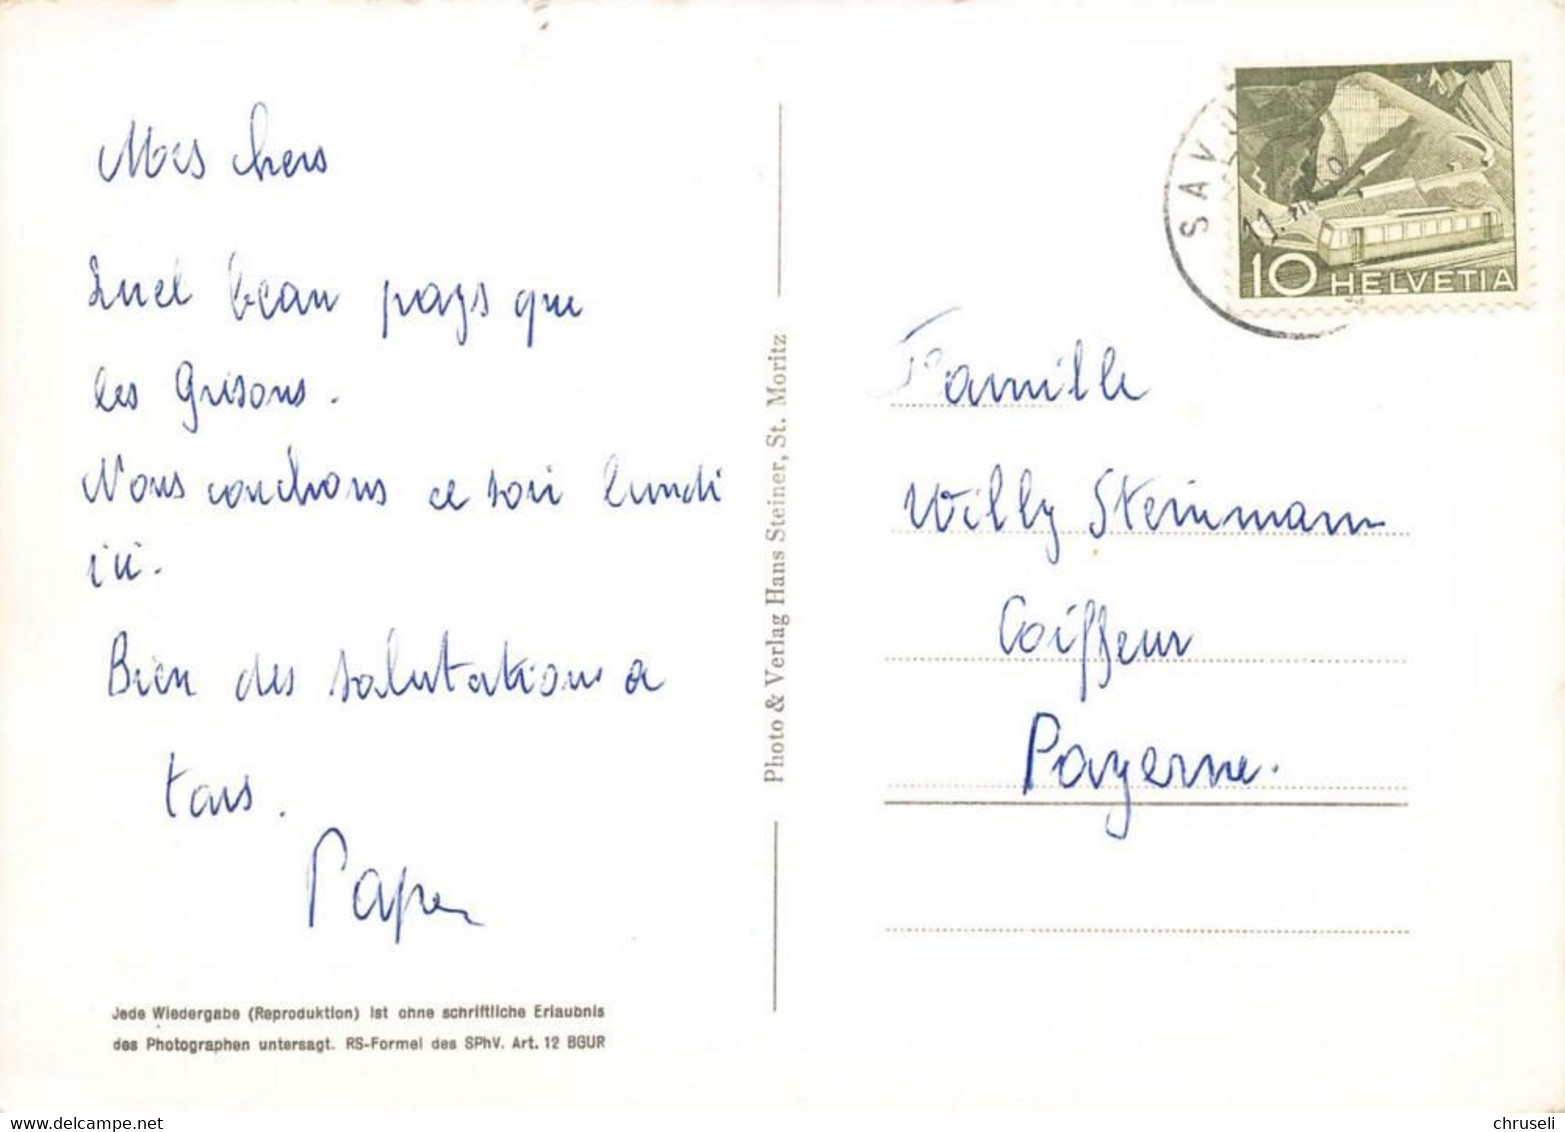 Mes chers
Quel beau pays que
les Grisons.
Nous couchons ce soir lundi
ici.
Bien des salutations a
tous.
Papa
Jede Wiedergabe (Reproduktion) ist ohne schriftliche Erlaubnis
des Photographen untersagt. RS-Formel des SPhV. Art. 12 BGUR
Photo & Verlag Hans Steiner, St. Moritz
SAV
10 HELVETIA
Famille
Willy Steinmann
Coiffeur
Payerne.
chruseli